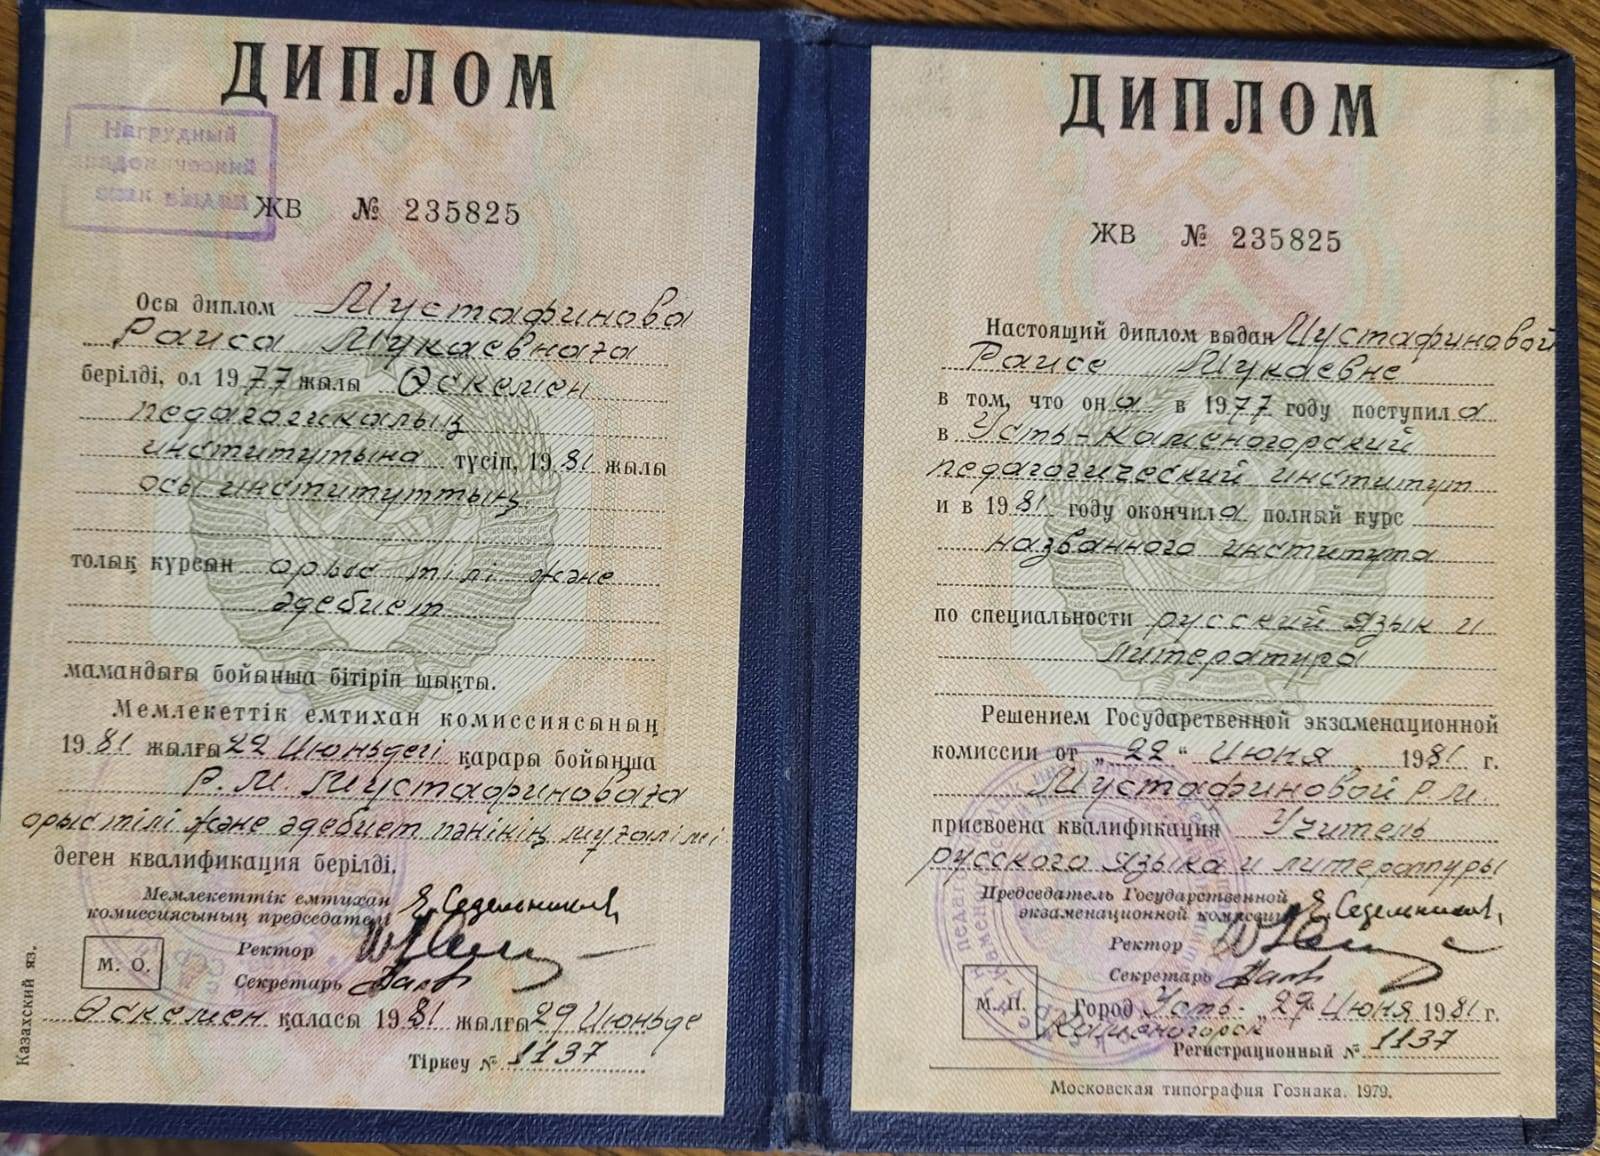 ДИПЛОМ
Нагрудный
академический
знак выдан
ЖВ № 235825
Осы диплом Мустафинова
Раиса Мукаевнаға
берілді, ол 1977 жылы Өскемен
педагогикалық
институтына түсіп, 1981 жылы
осы институттың
толық курсын орыс тілі және
әдебиет
мамандығы бойынша бітіріп шықты.
Мемлекеттік емтихан комиссиясының
1981 жылғы 22 Июньдегі қарары бойынша
Р.М. Мустафиноваға
орыс тілі және әдебиет пәнінің мұғалімі
деген квалификация берілді.
Мемлекеттік емтихан
комиссиясының председателі Е. Седельников
Ректор
Секретарь
М. О.
Өскемен қаласы 1981 жылғы 29 Июньде
Тіркеу № 1137
Казахский яз.
ДИПЛОМ
ЖВ № 235825
Настоящий диплом выдан Мустафиновой
Раисе Мукаевне
в том, что она в 1977 году поступила
в Усть-Каменогорский
педагогический институт
и в 1981 году окончила полный курс
названного института
по специальности русский язык и
литература
Решением Государственной экзаменационной
комиссии от „22“ Июня 1981 г.
Мустафиновой Р.М.
присвоена квалификация Учитель
русского языка и литературы
Председатель Государственной
экзаменационной комиссии Е. Седельников
Ректор
Секретарь
М. П.
Город Усть- „29“ Июня 1981 г.
Каменогорск
Регистрационный № 1137
Московская типография Гознака. 1979.